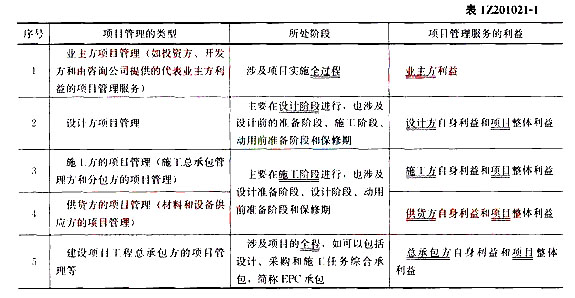 表 1Z201021-1
序号 项目管理的类型 所处阶段 项目管理服务的利益
1 业主方项目管理（如投资方、开发方和由咨询公司提供的代表业主方利益的项目管理服务） 涉及项目实施全过程 业主方利益
2 设计方项目管理 主要在设计阶段进行，也涉及设计前的准备阶段、施工阶段、动用前准备阶段和保修期 设计方自身利益和项目整体利益
3 施工方的项目管理（施工总承包管理方和分包方的项目管理） 主要在施工阶段进行，也涉及设计准备阶段、设计阶段、动用前准备阶段和保修期 施工方自身利益和项目整体利益
4 供货方的项目管理（材料和设备供应方的项目管理） 供货方自身利益和项目整体利益
5 建设项目工程总承包方的项目管理等 涉及项目的全程，如可以包括设计、采购和施工任务综合承包，简称 EPC 承包 总承包方自身利益和项目整体利益